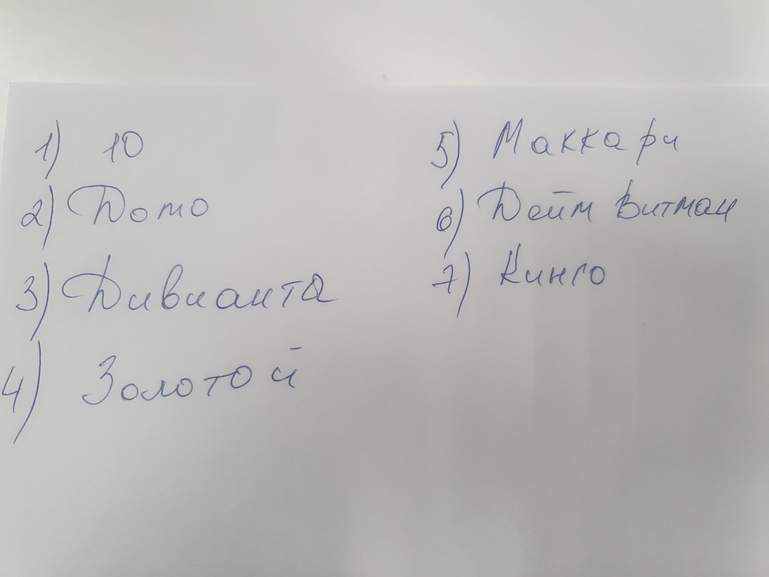 1) 10
2) Домо
3) Дивианта
4) Золотой
5) Маккари
6) Дейм Витман
7) Кинго